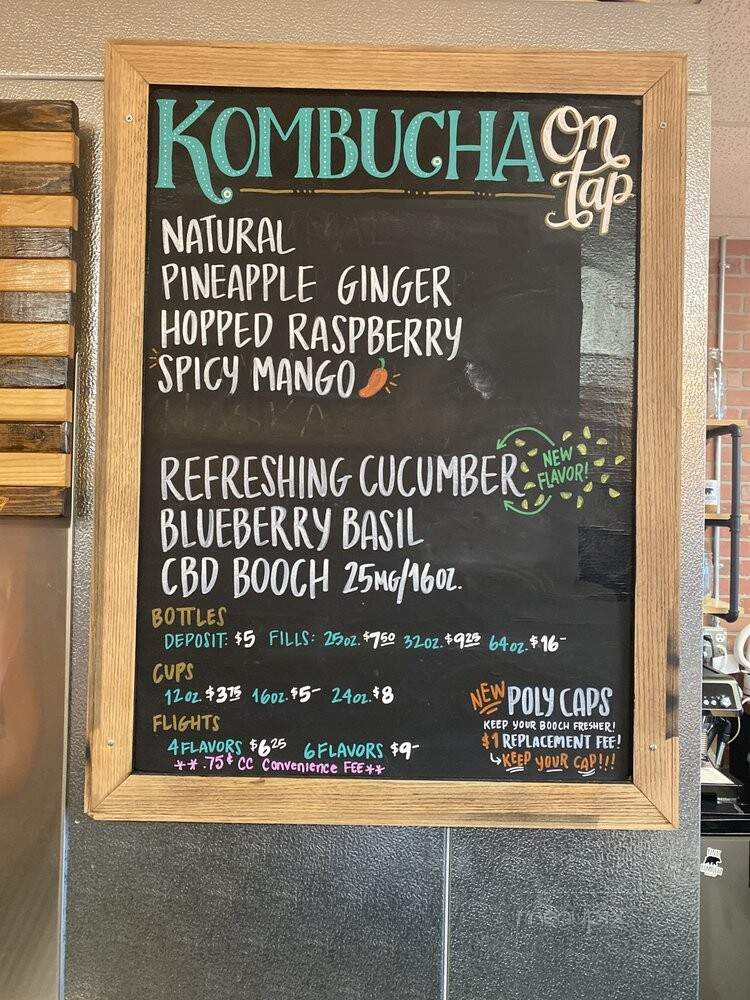 KOMBUCHA On tap
NATURAL
PINEAPPLE GINGER
HOPPED RASPBERRY
SPICY MANGO
REFRESHING CUCUMBER NEW FLAVOR!
BLUEBERRY BASIL
CBD BOOCH 25MG/16OZ.
BOTTLES
DEPOSIT: $5 FILLS: 25OZ. $7.50 32OZ. $9.25 64OZ. $16-
CUPS
12OZ. $3.75 16OZ. $5- 24OZ. $8
FLIGHTS
4 FLAVORS $6.25 6 FLAVORS $9-
**.75¢ CC Convenience FEE**
NEW POLY CAPS
KEEP YOUR BOOCH FRESHER!
$1 REPLACEMENT FEE!
KEEP YOUR CAP!!!